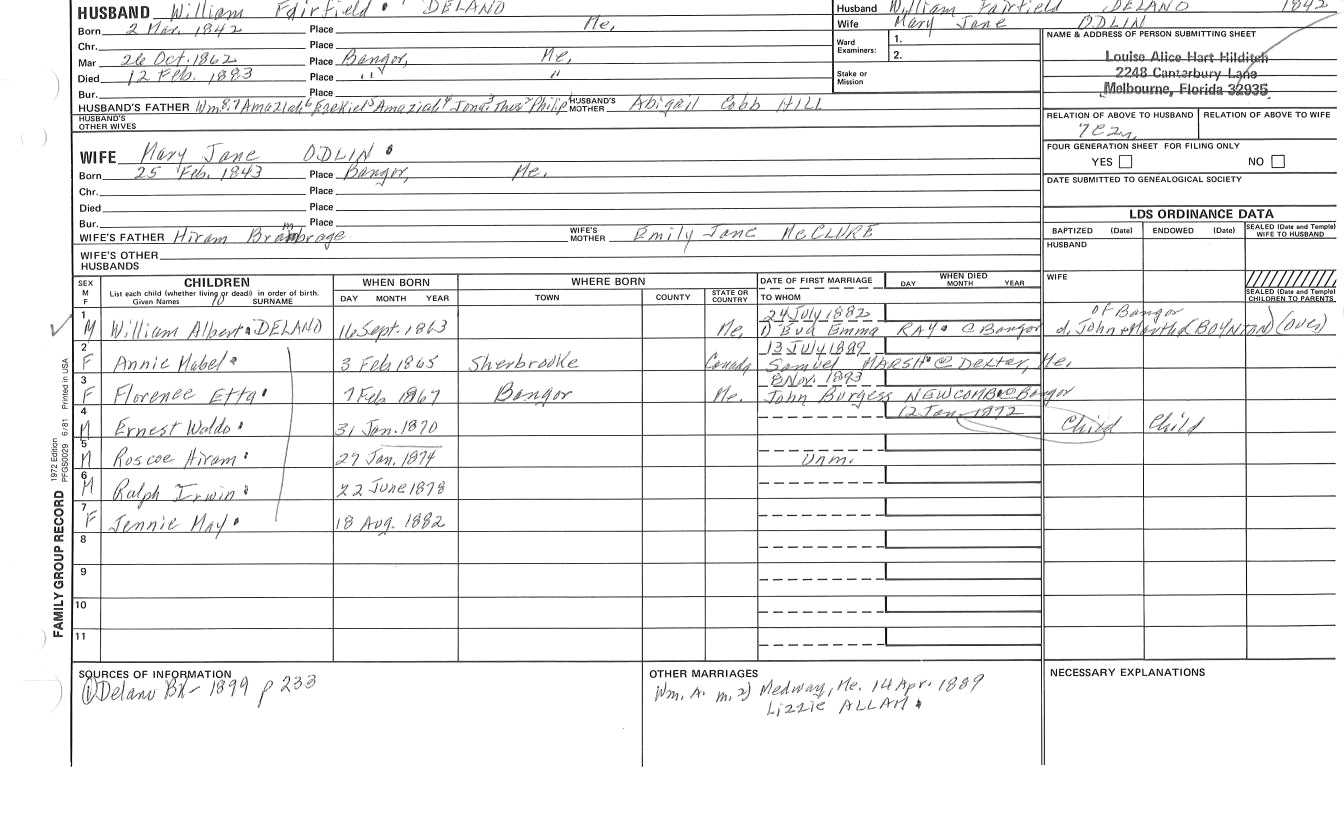 HUSBAND William Fairfield DELANO
Husband William Fairfield DELANO 1842
Born 2 Mar. 1842 Place Me,
Wife Mary Jane ODLIN
Chr. Place
Ward Examiners: 1.
2.
NAME & ADDRESS OF PERSON SUBMITTING SHEET
Louise Alice Hart Hilditch
2248 Canterbury Lane
Melbourne, Florida 32935
Mar 26 Oct. 1862 Place Bangor, Me,
Died 12 Feb. 1883 Place " "
Stake or Mission
Bur. Place
HUSBAND'S FATHER Wm8.7 Amaziah6 Ezekiel5 Amaziah4 Jona.3 Thos2 Philip1 HUSBAND'S MOTHER Abigail Cobb HILL
HUSBAND'S OTHER WIVES
RELATION OF ABOVE TO HUSBAND RELATION OF ABOVE TO WIFE
WIFE Mary Jane ODLIN
FOUR GENERATION SHEET FOR FILING ONLY
YES NO
Born 25 Feb. 1843 Place Bangor, Me.
Chr. Place
DATE SUBMITTED TO GENEALOGICAL SOCIETY
Died Place
Bur. Place
LDS ORDINANCE DATA
WIFE'S FATHER Hiram WIFE'S MOTHER Emily Jane McCLURE
BAPTIZED (Date) ENDOWED (Date) SEALED (Date and Temple) WIFE TO HUSBAND
HUSBAND
WIFE'S OTHER HUSBANDS
WIFE
SEALED (Date and Temple) CHILDREN TO PARENTS
SEX M F CHILDREN List each child (whether living or dead) in order of birth. Given Names SURNAME 10
WHEN BORN DAY MONTH YEAR
WHERE BORN TOWN COUNTY STATE OR COUNTRY
DATE OF FIRST MARRIAGE TO WHOM
WHEN DIED DAY MONTH YEAR
24 July 1882 of Bangor
1 M William Albert DELANO 16 Sept. 1863 Me, 1) Eva Emma RAY @ Bangor d. John & Martha (BOYNTON) (over)
13 July 1889
2 F Annie Mabel 3 Feb 1865 Sherbrooke Canada Samuel MARSH @ Dexter, Me.
8 Nov. 1893
3 F Florence Etta 7 Feb 1867 Bangor Me. John Burgess NEWCOMB @ Bangor
12 Jan. 1872
4 M Ernest Waldo 31 Jan. 1870 Child Child
5 M Roscoe Hiram 27 Jan. 1874 Unm.
6 M Ralph Irwin 22 June 1878
7 F Jennie May 18 Aug. 1882
8
9
10
11
FAMILY GROUP RECORD 1972 Edition PFGS0029 6/81 Printed in USA
SOURCES OF INFORMATION
(1) Delano BK - 1899 p 233
OTHER MARRIAGES
Wm. A. m. 2) Medway, Me. 14 Apr. 1889
Lizzie ALLAM
NECESSARY EXPLANATIONS